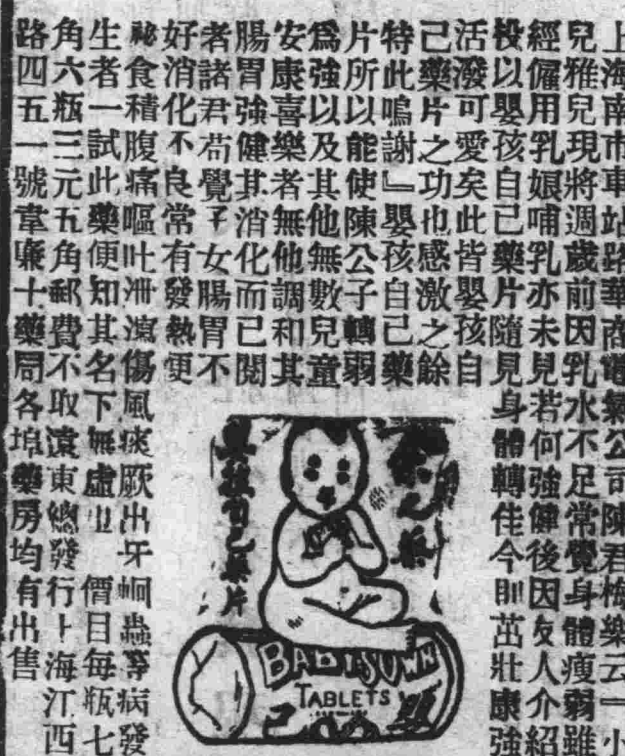 上海南市車站路華商電氣公司陳君梅樂云『小
兒雅兒現將週歲前因乳水不足常覺身體瘦弱雖
經僱用乳娘哺乳亦未見若何強健後因友人介紹
投以嬰孩自己藥片隨見身體轉佳今則茁壯康強
活潑可愛矣此皆嬰孩自
己藥片之功也感激之餘
特此鳴謝』嬰孩自己藥
片所以能使陳公子轉弱
為強以及其他無數兒童
安康喜樂者無他調和其
腸胃強健其消化而已閱
者諸君苟覺子女腸胃不
好消化不良常有發熱便
祕食積腹痛嘔吐泄瀉傷風痰厥出牙蛔蟲等病發
生者一試此藥便知其名下無虛也 價目每瓶七
角六瓶三元五角郵費不取遠東總發行上海江西
路四五一號韋廉士藥局各埠藥房均有出售
嬰孩自己藥片
BABY'S OWN
TABLETS